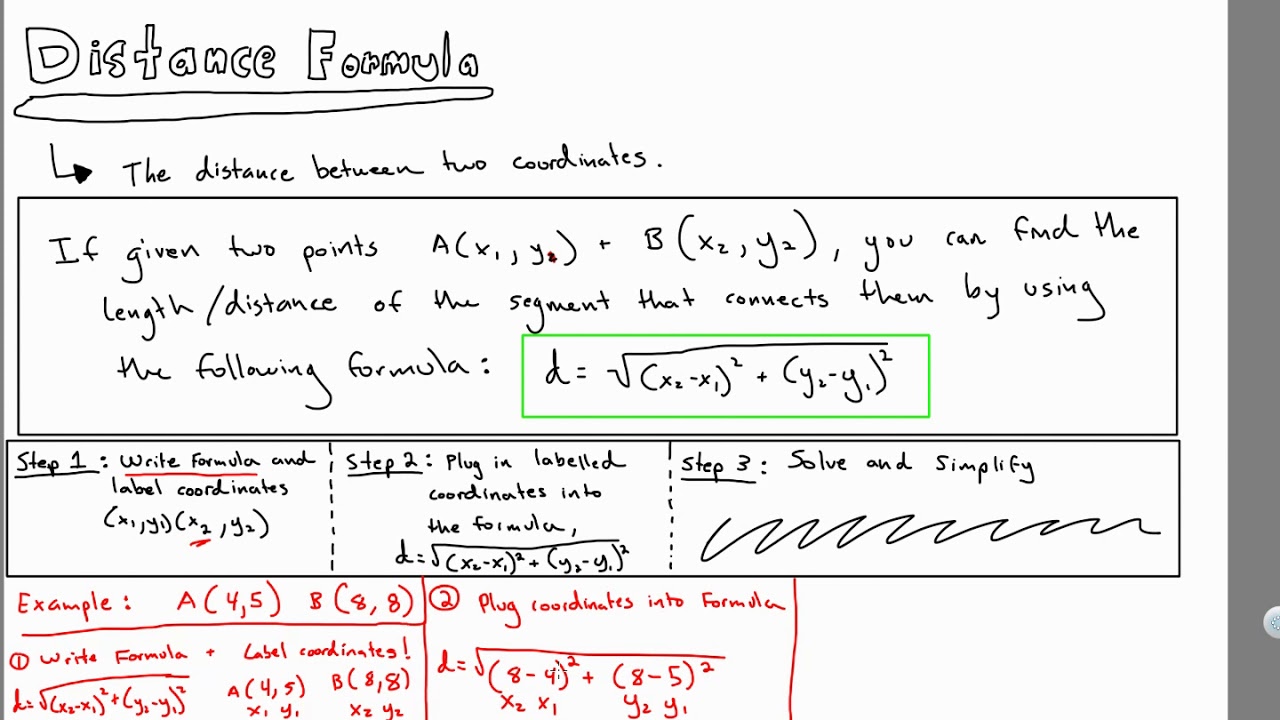 Distance Formula
The distance between two coordinates.
If given two points A(x₁, y₂) + B(x₂, y₂), you can find the
length/distance of the segment that connects them by using
the following formula: d = √(x₂-x₁)² + (y₂-y₁)²
Step 1: Write Formula and
label coordinates
(x₁,y₁)(x₂,y₂)
Step 2: Plug in labelled
coordinates into
the formula,
d=√(x₂-x₁)² + (y₂-y₁)²
Step 3: Solve and Simplify
Example: A(4,5) B(8,8)
① Write Formula + Label coordinates!
d=√(x₂-x₁)²+(y₂-y₁)² A(4,5) B(8,8)
x₁ y₁ x₂ y₂
② Plug coordinates into Formula
d=√(8-4)² + (8-5)²
x₂ x₁ y₂ y₁